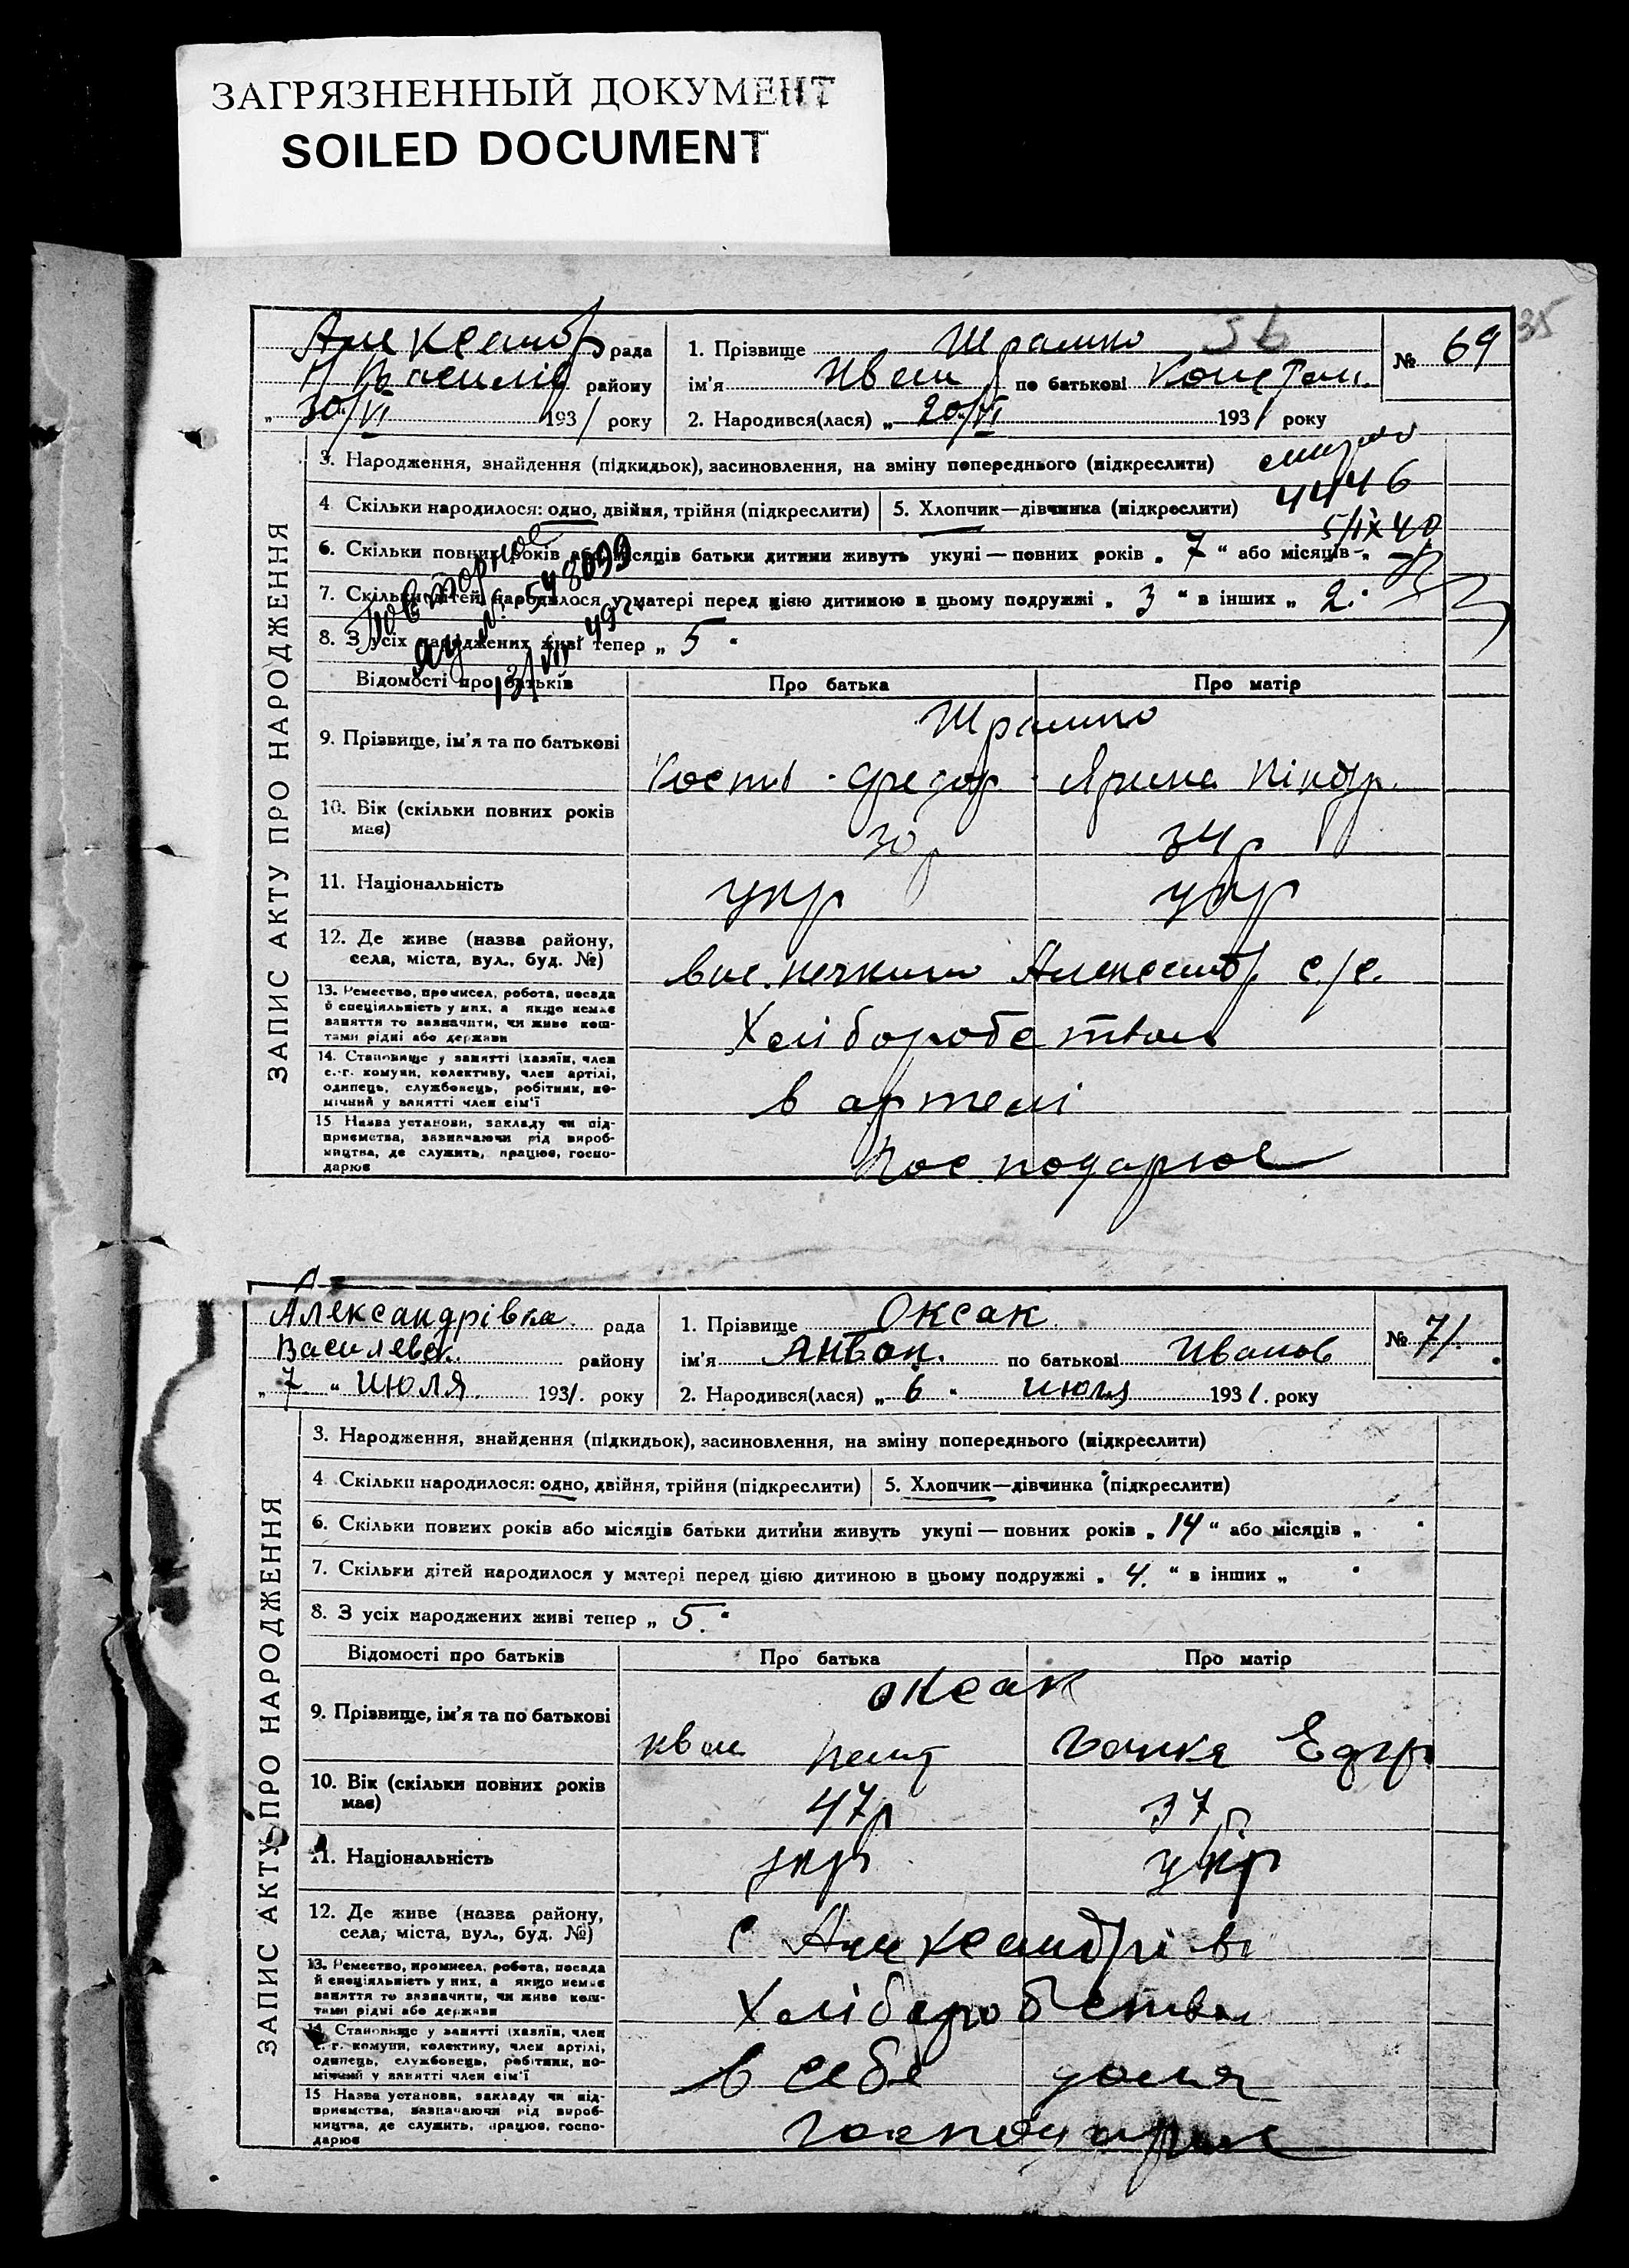 ЗАГРЯЗНЕННЫЙ ДОКУМЕНТ
SOILED DOCUMENT
35
Александр рада
Н Василів району
„ 30/VI 1931 року
1. Прізвище Шрамко
ім’я Иван по батькові Констан.
2. Народився(лася) „ 20/VI 1931 року
№ 69
ЗАПИС АКТУ ПРО НАРОДЖЕННЯ
3. Народження, знайдення (підкидьок), засиновлення, на зміну попереднього (підкреслити)
4446
4 Скільки народилося: одно, двійня, трійня (підкреслити) 5. Хлопчик—дівчинка (підкреслити)
5/IX 40
6. Скільки повних років або місяців батьки дитини живуть укупі — повних років „ 7 “ або місяців „
7. Скільки дітей народилося у матері перед цією дитиною в цьому подружжі „ 3 “ в інших „ 2. “
8. З усіх народжених живі тепер „ 5 “
Повторное
13/VII 49 г.
Відомості про батьків Про батька Про матір
Шрамко
9. Прізвище, ім’я та по батькові
Кость Федор Ярина
10. Вік (скільки повних років має) 30 р 34 р
11. Національність укр укр
12. Де живе (назва району, села, міста, вул., буд. №) Александ с/с.
13. Ремество, промисел, робота, посада
й спеціяльність у них, а якщо немає
заняття то зазначити, чи живе кош-
тами рідні або держави
Хліборобством
14. Становище у занятті (хазяїн, член
с.-г. комуни, колективу, член артілі,
одинець, службовець, робітник, по-
мічний у занятті член сім’ї
в артелі
15 Назва установи, закладу чи під-
приємства, зазначаючи рід вироб-
ництва, де служить, працює, госпо-
дарює
Господарює
Александрівка рада
Василевск. району
„ 7 “ июля 1931. року
1. Прізвище Оксак
ім’я Антон. по батькові Иванов
2. Народився(лася) „ 6 “ июля 1931. року
№ 71.
ЗАПИС АКТУ ПРО НАРОДЖЕННЯ
3. Народження, знайдення (підкидьок), засиновлення, на зміну попереднього (підкреслити)
4 Скільки народилося: одно, двійня, трійня (підкреслити) 5. Хлопчик—дівчинка (підкреслити)
6. Скільки повних років або місяців батьки дитини живуть укупі — повних років „ 14 “ або місяців „ “
7. Скільки дітей народилося у матері перед цією дитиною в цьому подружжі „ 4. “ в інших „ “
8. З усіх народжених живі тепер „ 5. “
Відомості про батьків Про батька Про матір
Оксак
9. Прізвище, ім’я та по батькові
Иван
10. Вік (скільки повних років має) 47 р 37 р.
11. Національність укр укр
12. Де живе (назва району, села, міста, вул., буд. №) с Александрівк
13. Ремество, промисел, робота, посада
й спеціяльність у них, а якщо немає
заняття то зазначити, чи живе кош-
тами рідні або держави
Хліборобством
14. Становище у занятті (хазяїн, член
с. г. комуни, колективу, член артілі,
одинець, службовець, робітник, по-
мічний у занятті член сім’ї
в себе дома
15 Назва установи, закладу чи під-
приємства, зазначаючи рід вироб-
ництва, де служить, працює, госпо-
дарює
господарює